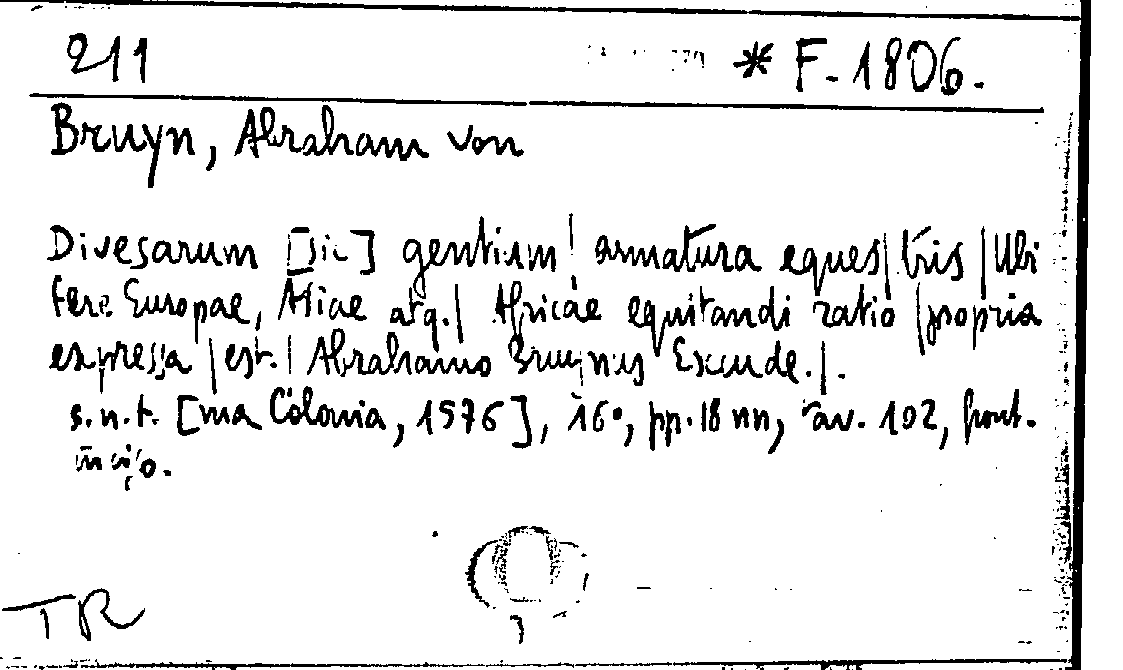 211 * F-1806.
Bruyn, Abraham von
Divesarum [sic] gentium | armatura eques|tris | Ubi
fere Europae, Asiae atq. | Africae equitandi ratio | propria
expressa | est. | Abrahamo Bruynus Excude. |.
s.n.t. [ma Colonia, 1576], 16°, pp. 18 nn, tav. 102, front.
inciso.
TR